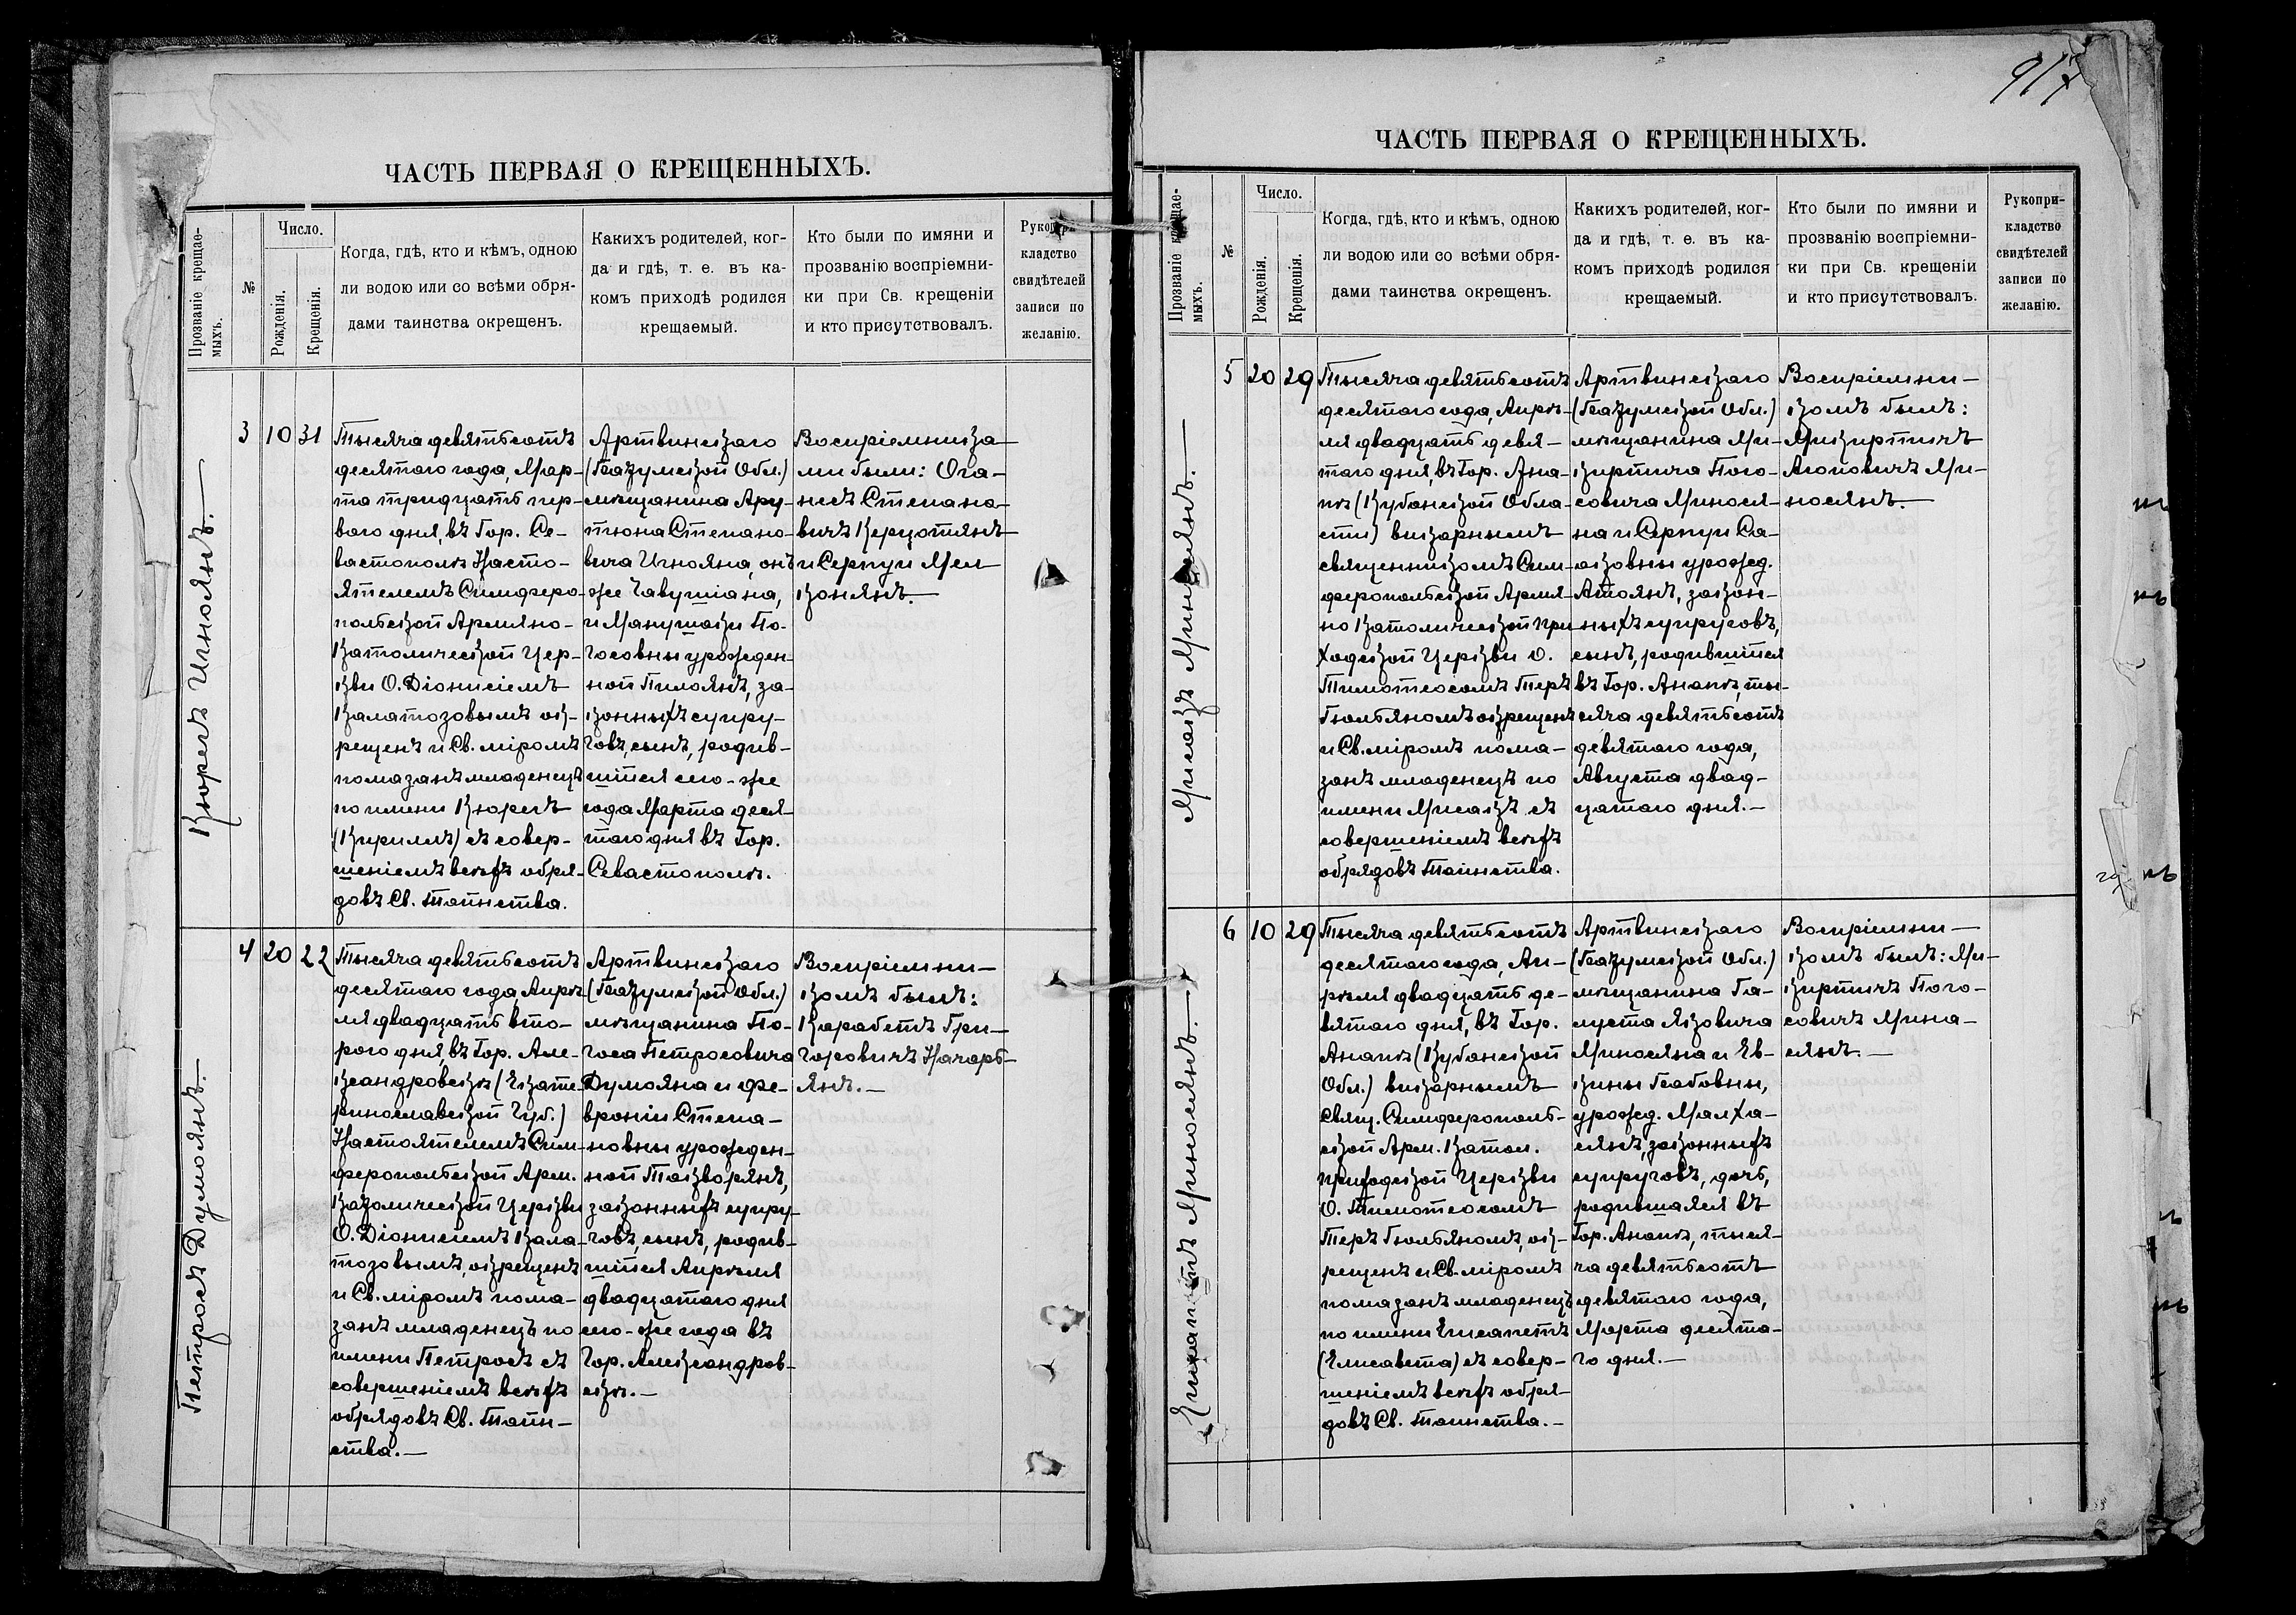 ЧАСТЬ ПЕРВАЯ О КРЕЩЕННЫХЪ.
Прозваніе крещае-
мыхъ.
№
Число.
Рожденія.
Крещенія.
Когда, гдѣ, кто и кѣмъ, одною
ли водою или со всѣми обря-
дами таинства окрещенъ.
Какихъ родителей, ког-
да и гдѣ, т. е. въ ка-
комъ приходѣ родился
крещаемый.
Кто были по имяни и
прозванію воспріемни-
ки при Св. крещеніи
и кто присутствовалъ.
Рукопри-
кладство
свидѣтелей
записи по
желанію.
Кюрегъ Игноянъ.—
3
10
31
Тысяча девятьсотъ
десятаго года, Мар-
та тридцать пер-
ваго дня, въ Гор. Се-
вастополѣ Насто-
ятелемъ Симферо-
польской Армяно-
Католической Цер-
кви О. Діонисіемъ
Калатозовымъ ок-
рещенъ и Св. міромъ
помазанъ младенецъ
по имени Кюрегъ
(Кириллъ) съ совер-
шеніемъ всѣхъ обря-
довъ Св. Таинства.
Артвинскаго
(Батумской Обл.)
мѣщанина Ару-
тюна Степано-
вича Игнояна, онъ
же Чавушіана,
и Манушаки По-
госовны урожден-
ной Пилоянъ, за-
конныхъ супру-
говъ, сынъ, родив-
шійся сего-же
года Марта деся-
таго дня въ Гор.
Севастополѣ.
Воспріемника-
ми были: Ога-
несъ Степано-
вичъ Керзотянъ
и Серпуи Мел
конянъ.—
Петросъ Думоянъ.—
4
20
22
Тысяча девятьсотъ
десятаго года, Апрѣ-
ля двадцать вто-
рого дня, въ Гор. Але-
ксандровскѣ (Екате-
ринославской Губ.)
Настоятелемъ Сим-
феропольской Арм.
Католической Церкви
О. Діонисіемъ Кала-
тозовымъ, окрещенъ
и Св. міромъ пома-
занъ младенецъ по
имени Петросъ съ
совершеніемъ всѣхъ
обрядовъ Св. Таин-
ства.—
Артвинскаго
(Батумской Обл.)
мѣщанина По-
госа Петросовича
Думояна и Фе-
вроніи Степа-
новны урожден-
ной Такворянъ,
законныхъ супру-
говъ, сынъ, родив-
шійся Апрѣля
двадцатаго дня
сего-же года въ
Гор. Александров-
скѣ.—
Воспріемни-
комъ былъ:
Карабетъ Гри-
горовичъ Начарь-
янъ.—
917
ЧАСТЬ ПЕРВАЯ О КРЕЩЕННЫХЪ.
Прозваніе крещае-
мыхъ.
№
Число.
Рожденія.
Крещенія.
Когда, гдѣ, кто и кѣмъ, одною
ли водою или со всѣми обря-
дами таинства окрещенъ.
Какихъ родителей, ког-
да и гдѣ, т. е. въ ка-
комъ приходѣ родился
крещаемый.
Кто были по имяни и
прозванію воспріемни-
ки при Св. крещеніи
и кто присутствовалъ.
Рукопри-
кладство
свидѣтелей
записи по
желанію.
Мисакъ Миносянъ.—
5
20
29
Тысяча девятьсотъ
десятаго года, Апрѣ-
ля двадцать девя-
таго дня, въ Гор. Ана-
пѣ (Кубанской Обла-
сти) викарнымъ
священникомъ Сим-
феропольской Армя-
но Католической При
ходской Церкви О.
Тимотеосомъ Теръ
Гюльяномъ окрещенъ
и Св. міромъ пома-
занъ младенецъ по
имени Мисакъ съ
совершеніемъ всѣхъ
обрядовъ Таинства.
Артвинскаго
(Батумской Обл.)
мѣщанина Ми-
киртича Пого-
совича Минося-
на и Серпуи Са-
аковны урожд.
Атоянъ, закон-
ныхъ супруговъ,
сынъ, родившійся
въ Гор. Анапѣ, ты-
сяча девятьсотъ
девятаго года,
Августа двад-
цатаго дня.—
Воспріемни-
комъ былъ:
Микиртичъ
Акоповичъ Ми-
носянъ.—
Егисапетъ Миносянъ.—
6
10
29
Тысяча девятьсотъ
десятаго года, Ап-
рѣля двадцать де-
вятаго дня, въ Гор.
Анапѣ (Кубанской
Обл.) викарнымъ
Свящ. Симферополь-
ской Арм. Катол.
приходской Церкви
О. Тимотеосомъ
Теръ Гюльяномъ, ок-
рещенъ и Св. міромъ
помазанъ младенецъ
по имени Егисапетъ
(Елисавета) съ совер-
шеніемъ всѣхъ обря-
довъ Св. Таинства.—
Артвинскаго
(Батумской Обл.)
мѣщанина Га-
луста Яковича
Миносяна и Ев-
кины Бабовны,
урожд. Малха-
сянъ, законныхъ
супруговъ, дочь,
родившаяся въ
Гор. Анапѣ, тыся-
ча девятьсотъ
девятаго года,
Марта десята-
го дня.—
Воспріемни-
комъ былъ: Ми-
киртичъ Пого-
совичъ Мина-
сянъ.—